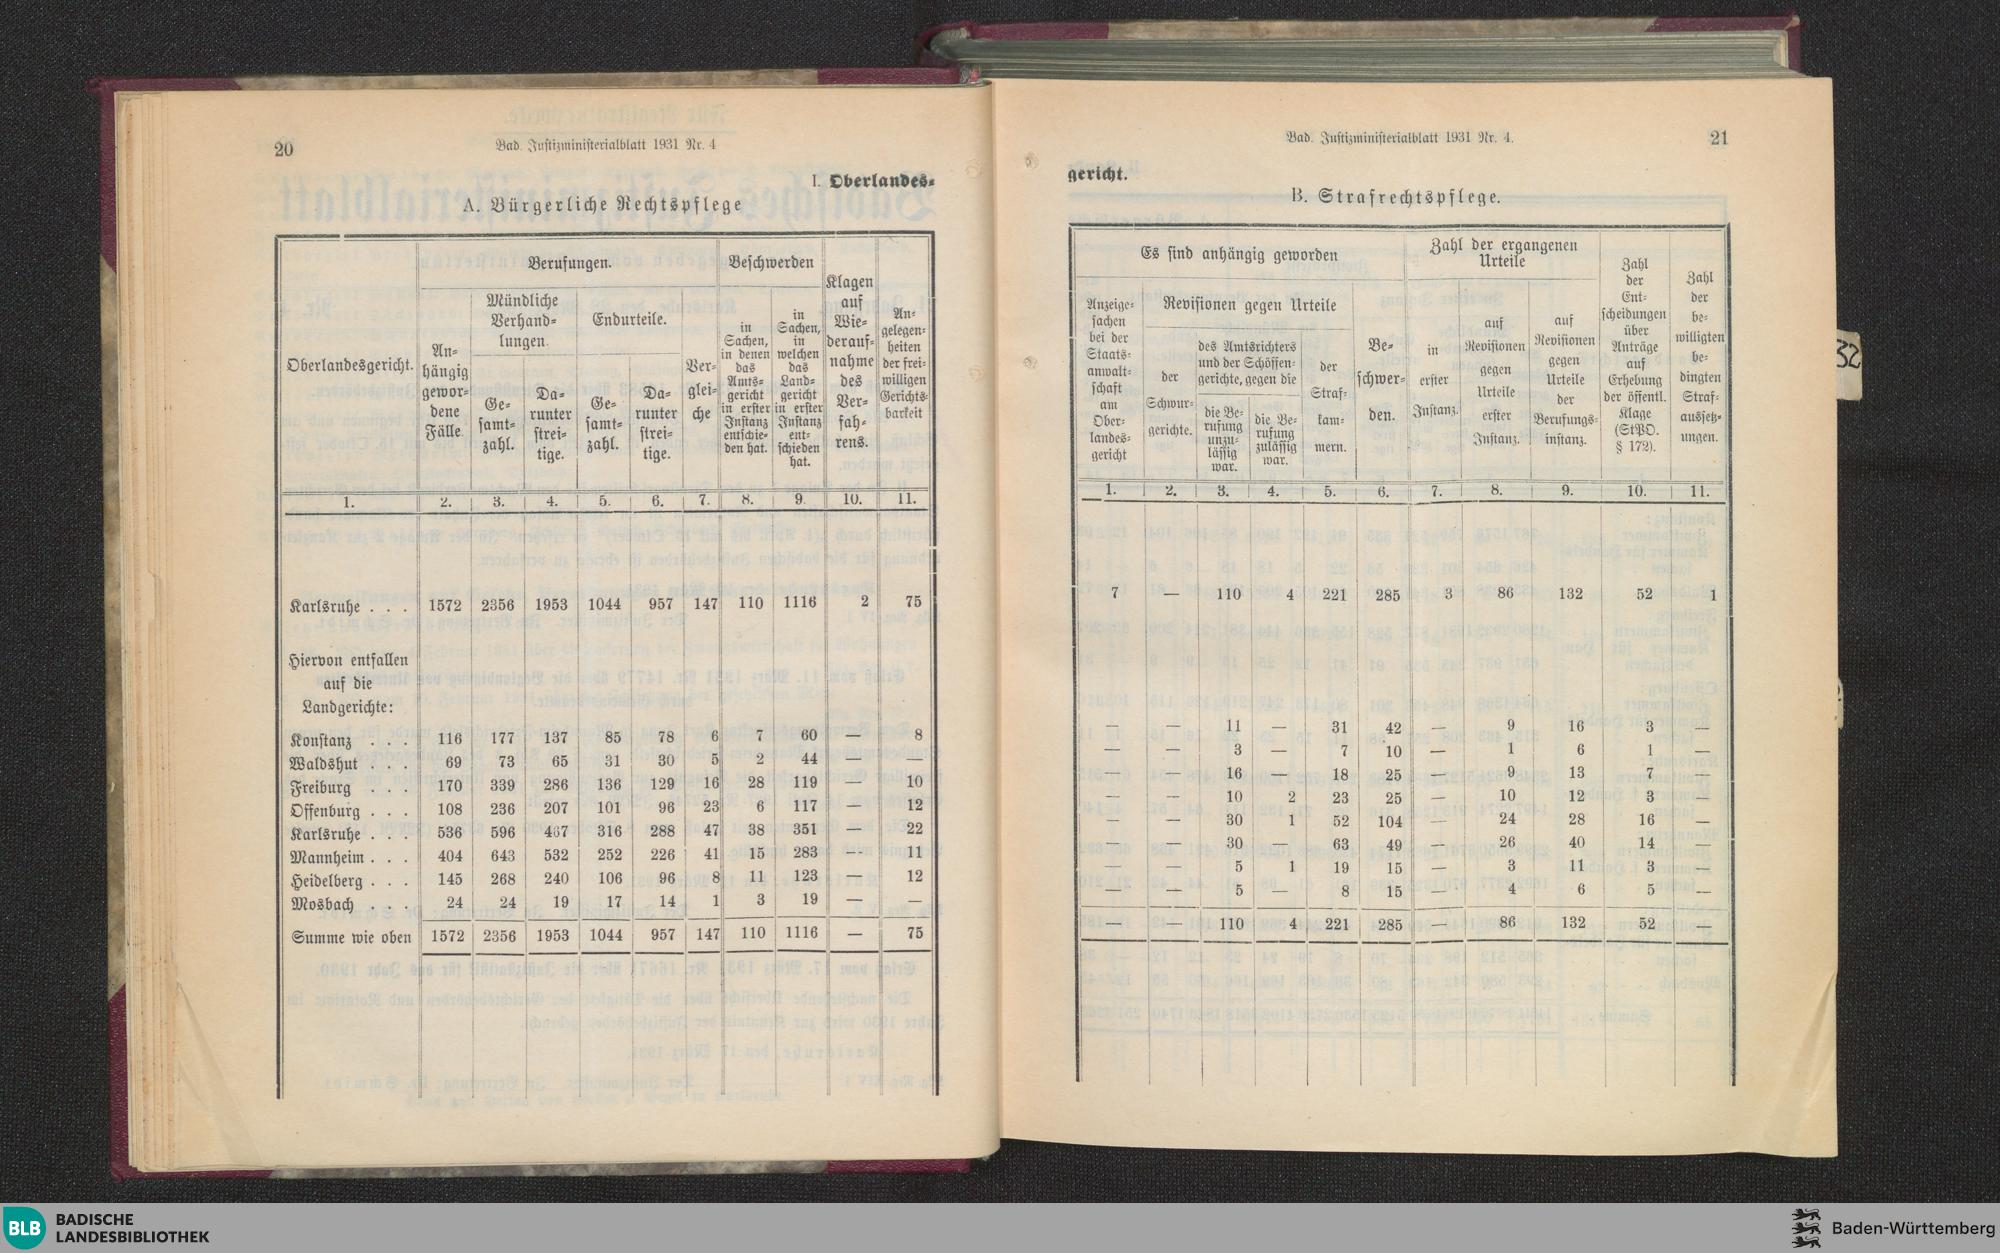 20
Bad. Justizministerialblatt 1931 Nr. 4
I. Oberlandes-
A. Bürgerliche Rechtspflege
Oberlandesgericht.
Berufungen.
An-
hängig
gewor-
dene
Fälle.
Mündliche
Verhand-
lungen.
Ge-
samt-
zahl.
Da-
runter
strei-
tige.
Endurteile.
Ge-
samt-
zahl.
Da-
runter
strei-
tige.
Ver-
glei-
che
Beschwerden
in
Sachen,
in denen
das
Amts-
gericht
in erster
Instanz
entschie-
den hat.
in
Sachen,
in
welchen
das
Land-
gericht
in erster
Instanz
ent-
schieden
hat.
Klagen
auf
Wie-
derauf-
nahme
des
Ver-
fah-
rens.
An-
gelegen-
heiten
der frei-
willigen
Gerichts-
barkeit
1. 2. 3. 4. 5. 6. 7. 8. 9. 10. 11.
Karlsruhe . . . 1572 2356 1953 1044 957 147 110 1116 2 75
Hiervon entfallen
auf die
Landgerichte:
Konstanz . . . 116 177 137 85 78 6 7 60 — 8
Waldshut . . . 69 73 65 31 30 5 2 44 — —
Freiburg . . . 170 339 286 136 129 16 28 119 — 10
Offenburg . . . 108 236 207 101 96 23 6 117 — 12
Karlsruhe . . . 536 596 467 316 288 47 38 351 — 22
Mannheim . . . 404 643 532 252 226 41 15 283 — 11
Heidelberg . . . 145 268 240 106 96 8 11 123 — 12
Mosbach . . . 24 24 19 17 14 1 3 19 — —
Summe wie oben 1572 2356 1953 1044 957 147 110 1116 — 75
Bad. Justizministerialblatt 1931 Nr. 4.
21
gericht.
B. Strafrechtspflege.
Es sind anhängig geworden
Anzeige-
sachen
bei der
Staats-
anwalt-
schaft
am
Ober-
landes-
gericht
Revisionen gegen Urteile
der
Schwur-
gerichte.
des Amtsrichters
und der Schöffen-
gerichte, gegen die
die Be-
rufung
unzu-
lässig
war.
die Be-
rufung
zulässig
war.
der
Straf-
kam-
mern.
Be-
schwer-
den.
Zahl der ergangenen
Urteile
in
erster
Instanz.
auf
Revisionen
gegen
Urteile
erster
Instanz.
auf
Revisionen
gegen
Urteile
der
Berufungs-
instanz.
Zahl
der
Ent-
scheidungen
über
Anträge
auf
Erhebung
der öffentl.
Klage
(StPO.
§ 172).
Zahl
der
be-
willigten
be-
dingten
Straf-
aussetz-
ungen.
1. 2. 3. 4. 5. 6. 7. 8. 9. 10. 11.
7 — 110 4 221 285 3 86 132 52 1
— — 11 — 31 42 — 9 16 3 —
— — 3 — 7 10 — 1 6 1 —
— — 16 — 18 25 — 9 13 7 —
— — 10 2 23 25 — 10 12 3 —
— — 30 1 52 104 — 24 28 16 —
— — 30 — 63 49 — 26 40 14 —
— — 5 1 19 15 — 3 11 3 —
— — 5 — 8 15 — 4 6 5 —
— — 110 4 221 285 — 86 132 52 —
32
BLB
BADISCHE
LANDESBIBLIOTHEK
Baden-Württemberg